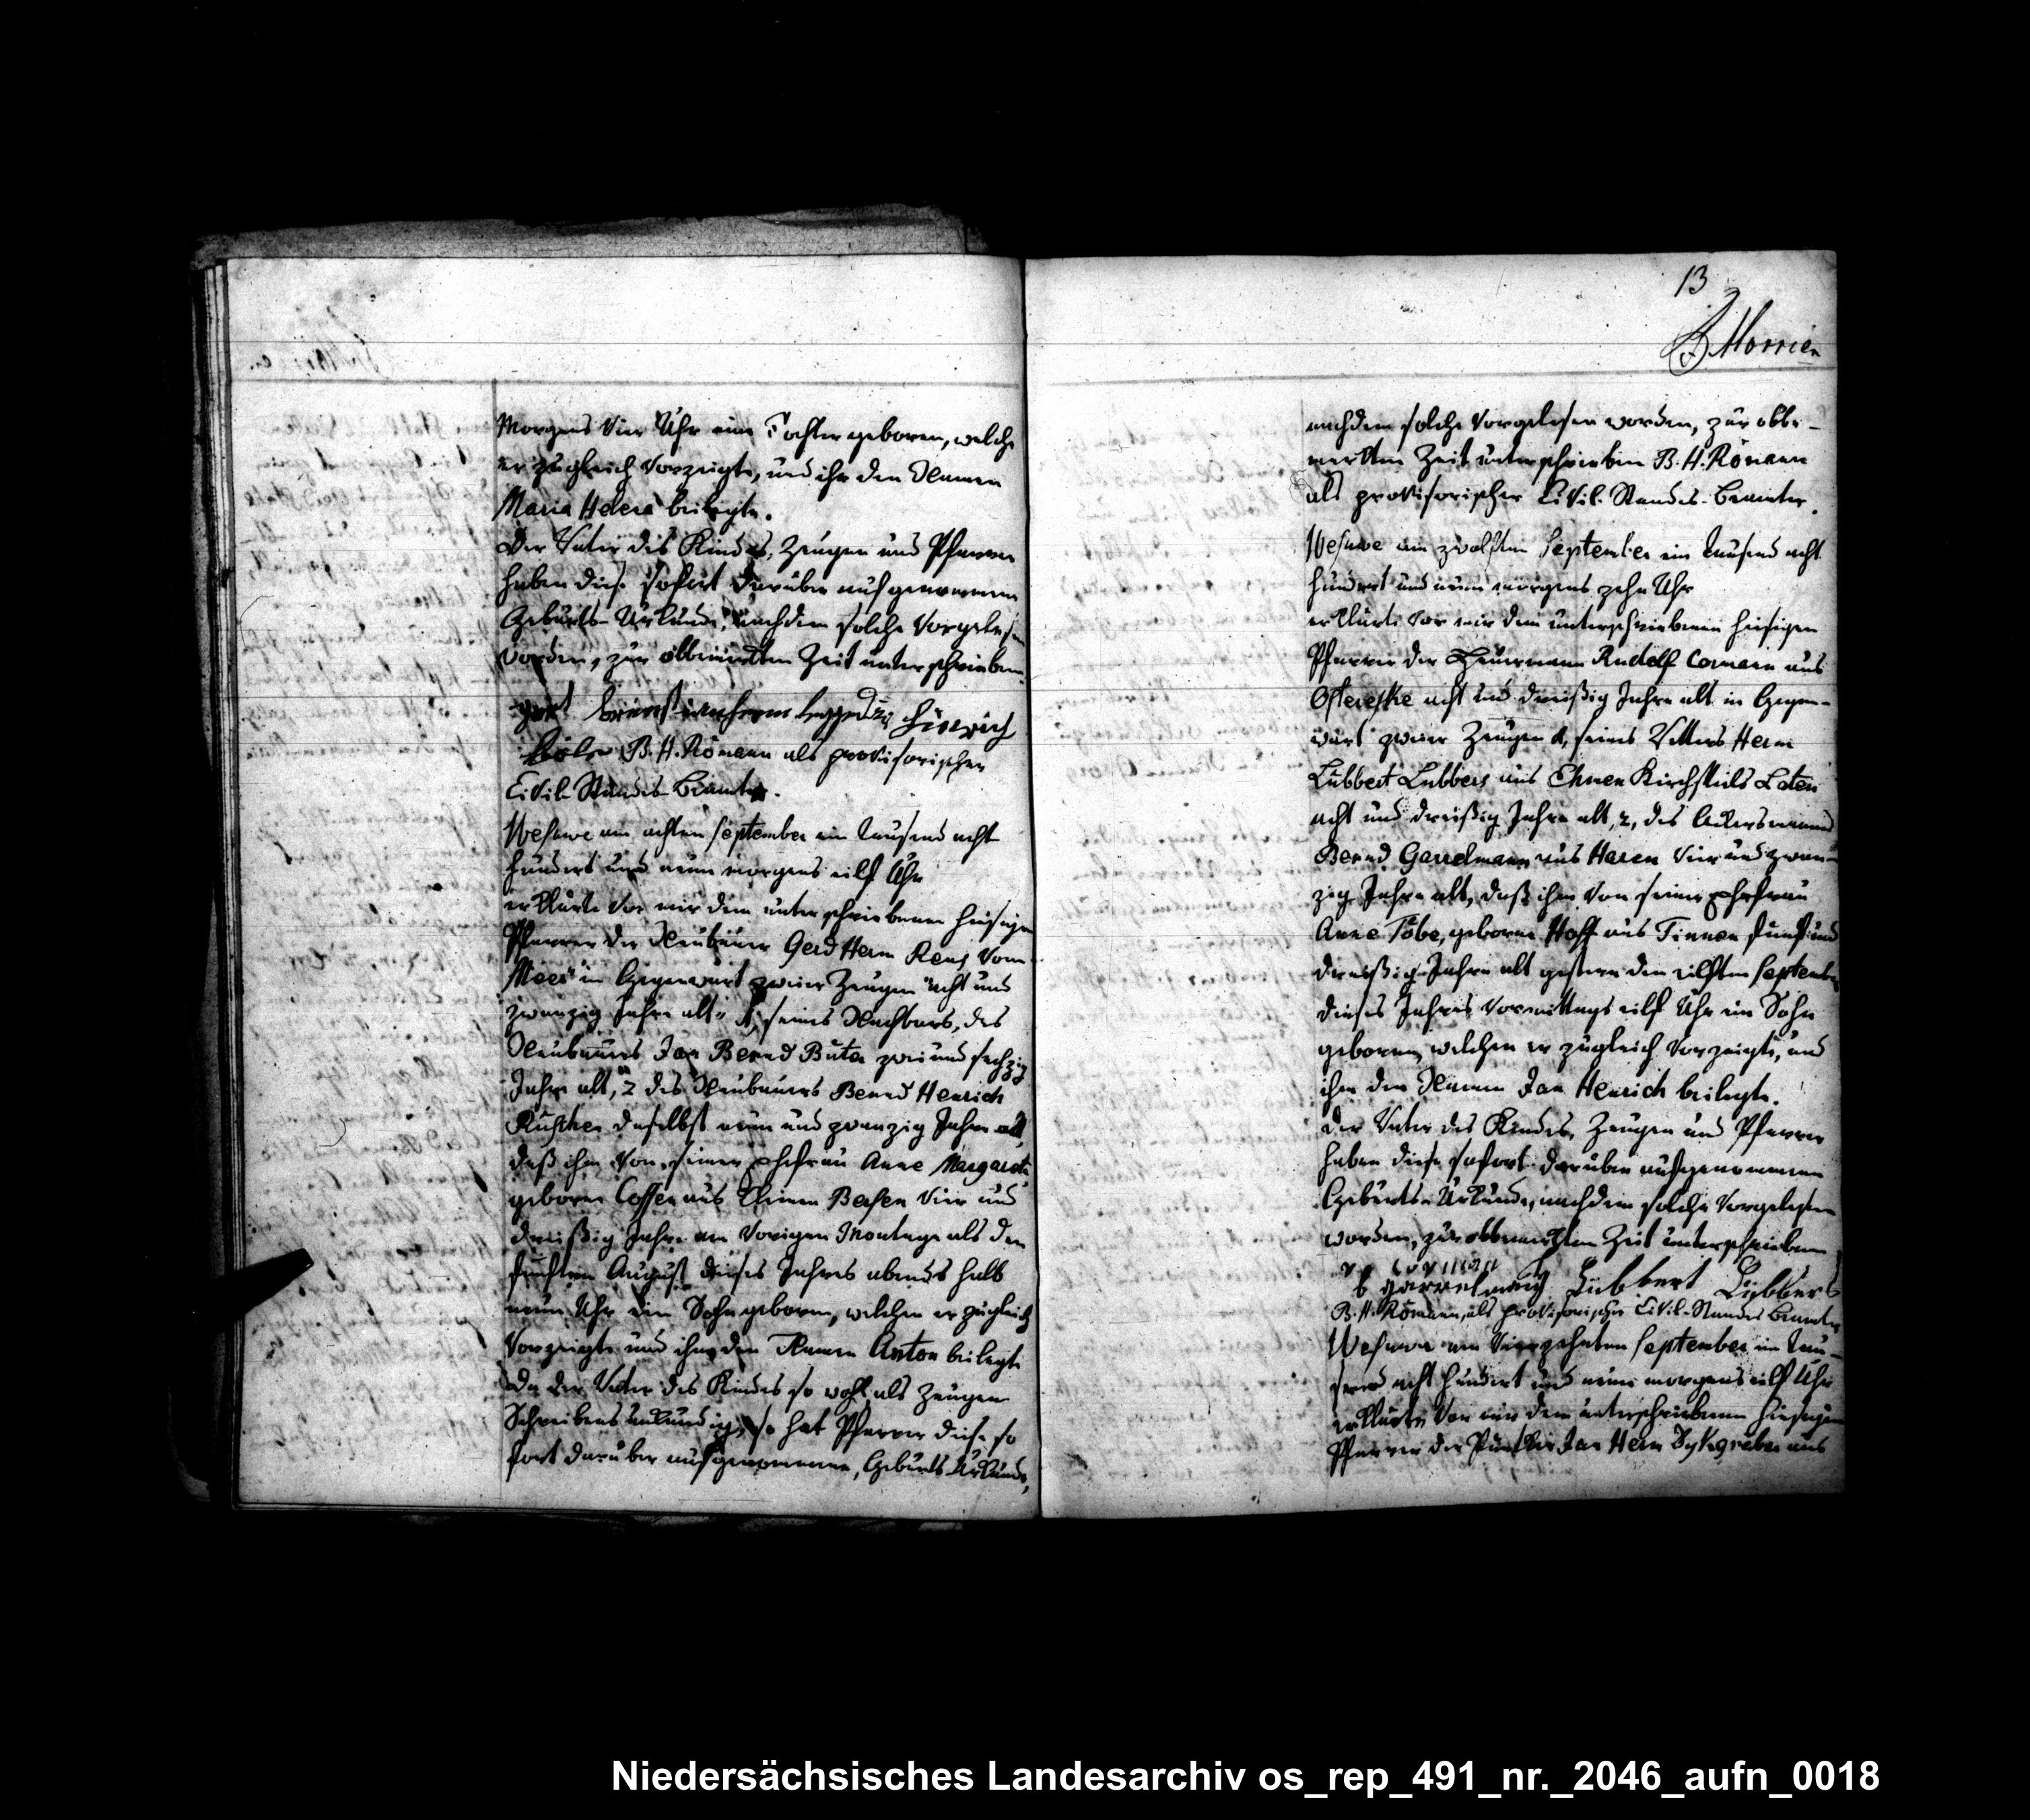 Morgens vier Uhr eine Tochter geboren, welche
er zugleich vorzeigte, und ihr den Namen
Maria Helena beilegte.
Der Vater des Kindes, Zeugen und Pfarrer
haben diese sofort darüber aufgenommene
Geburts-Urkunde, nachdem solche vorgelesen
worden, zur obbemerkten Zeit unterschrieben.
gert
Hinrich
B. H. Römann als provisorischer
Civil-Standes-Beamter.
Wesuwe am achten September ein tausend acht
hundert und neun morgens eilf Uhr
erklärte vor mir dem unterschriebenen hiesigen
Pfarrer der Neubauer Gerd Herm Rens vom
Meer in Gegenwart zweier Zeugen acht und
zwanzig Jahre alt 1, seines Nachbars, des
Neubauers Jan Bernd Buter zwei und sechzig
Jahre alt, 2 des Neubauers Bernd Henrich
daselbst neun und zwanzig Jahre alt,
daß ihm von seiner Ehefrau Anne Margareta
geborne aus Kleinen Bersen vier und
dreißig Jahre am vorigen Montage als den
August dieses Jahres abends halb
neun Uhr ein Sohn geboren, welchen er zugleich
vorzeigte und ihm den Namen Anton beilegte
Da der Vater des Kindes so wohl als Zeugen
Schreibens unkundig, so hat Pfarrer diese so
fort darüber aufgenommene, Geburts-Urkunde,
13
Morrien
nachdem solche vorgelesen worden, zur obbe-
merkten Zeit unterschrieben B. H. Römann
als provisorischer Civil-Standes-Beamter.
Wesuwe am zwölften September ein tausend acht
hundert und neun morgens zehn Uhr
erklärte vor mir dem unterschriebenen hiesigen
Pfarrer der Heuermann Rudolf Cormann aus
acht und dreißig Jahre alt in Gegen-
wart zweier Zeugen 1, seines Vetters Herm
Lübbert Lubbers aus Ehren Kirchspiels Laten
acht und dreißig Jahre alt, 2, des Ackersmanns
Bernd Garrelmann aus Haren vier und zwan-
zig Jahre alt, daß ihm von seiner Ehefrau
Anne Tobe, geborne Hoff aus Tinnen fünf und
dreißig Jahre alt gestern den eilften September
dieses Jahres vormittags eilf Uhr ein Sohn
geboren, welchen er zugleich vorzeigte, und
ihm den Namen Jan Henrich beilegte.
Der Vater des Kindes, Zeugen und Pfarrer
haben diese sofort darüber aufgenommene
Geburts-Urkunde, nachdem solche vorgelesen
worden, zur obbemerkten Zeit unterschrieben
r corman
b garrelmang Lubbert Lübbers
B. H. Römann, als provisorischer Civil-Standes Beamter
Wesuwe am vierzehnten September ein tau-
send acht hundert und neun morgens eilf Uhr
erklärte vor mir dem unterschriebenen hiesigen
Pfarrer der Jan Herm Dykgraber aus
Niedersächsisches Landesarchiv os_rep_491_nr._2046_aufn_0018